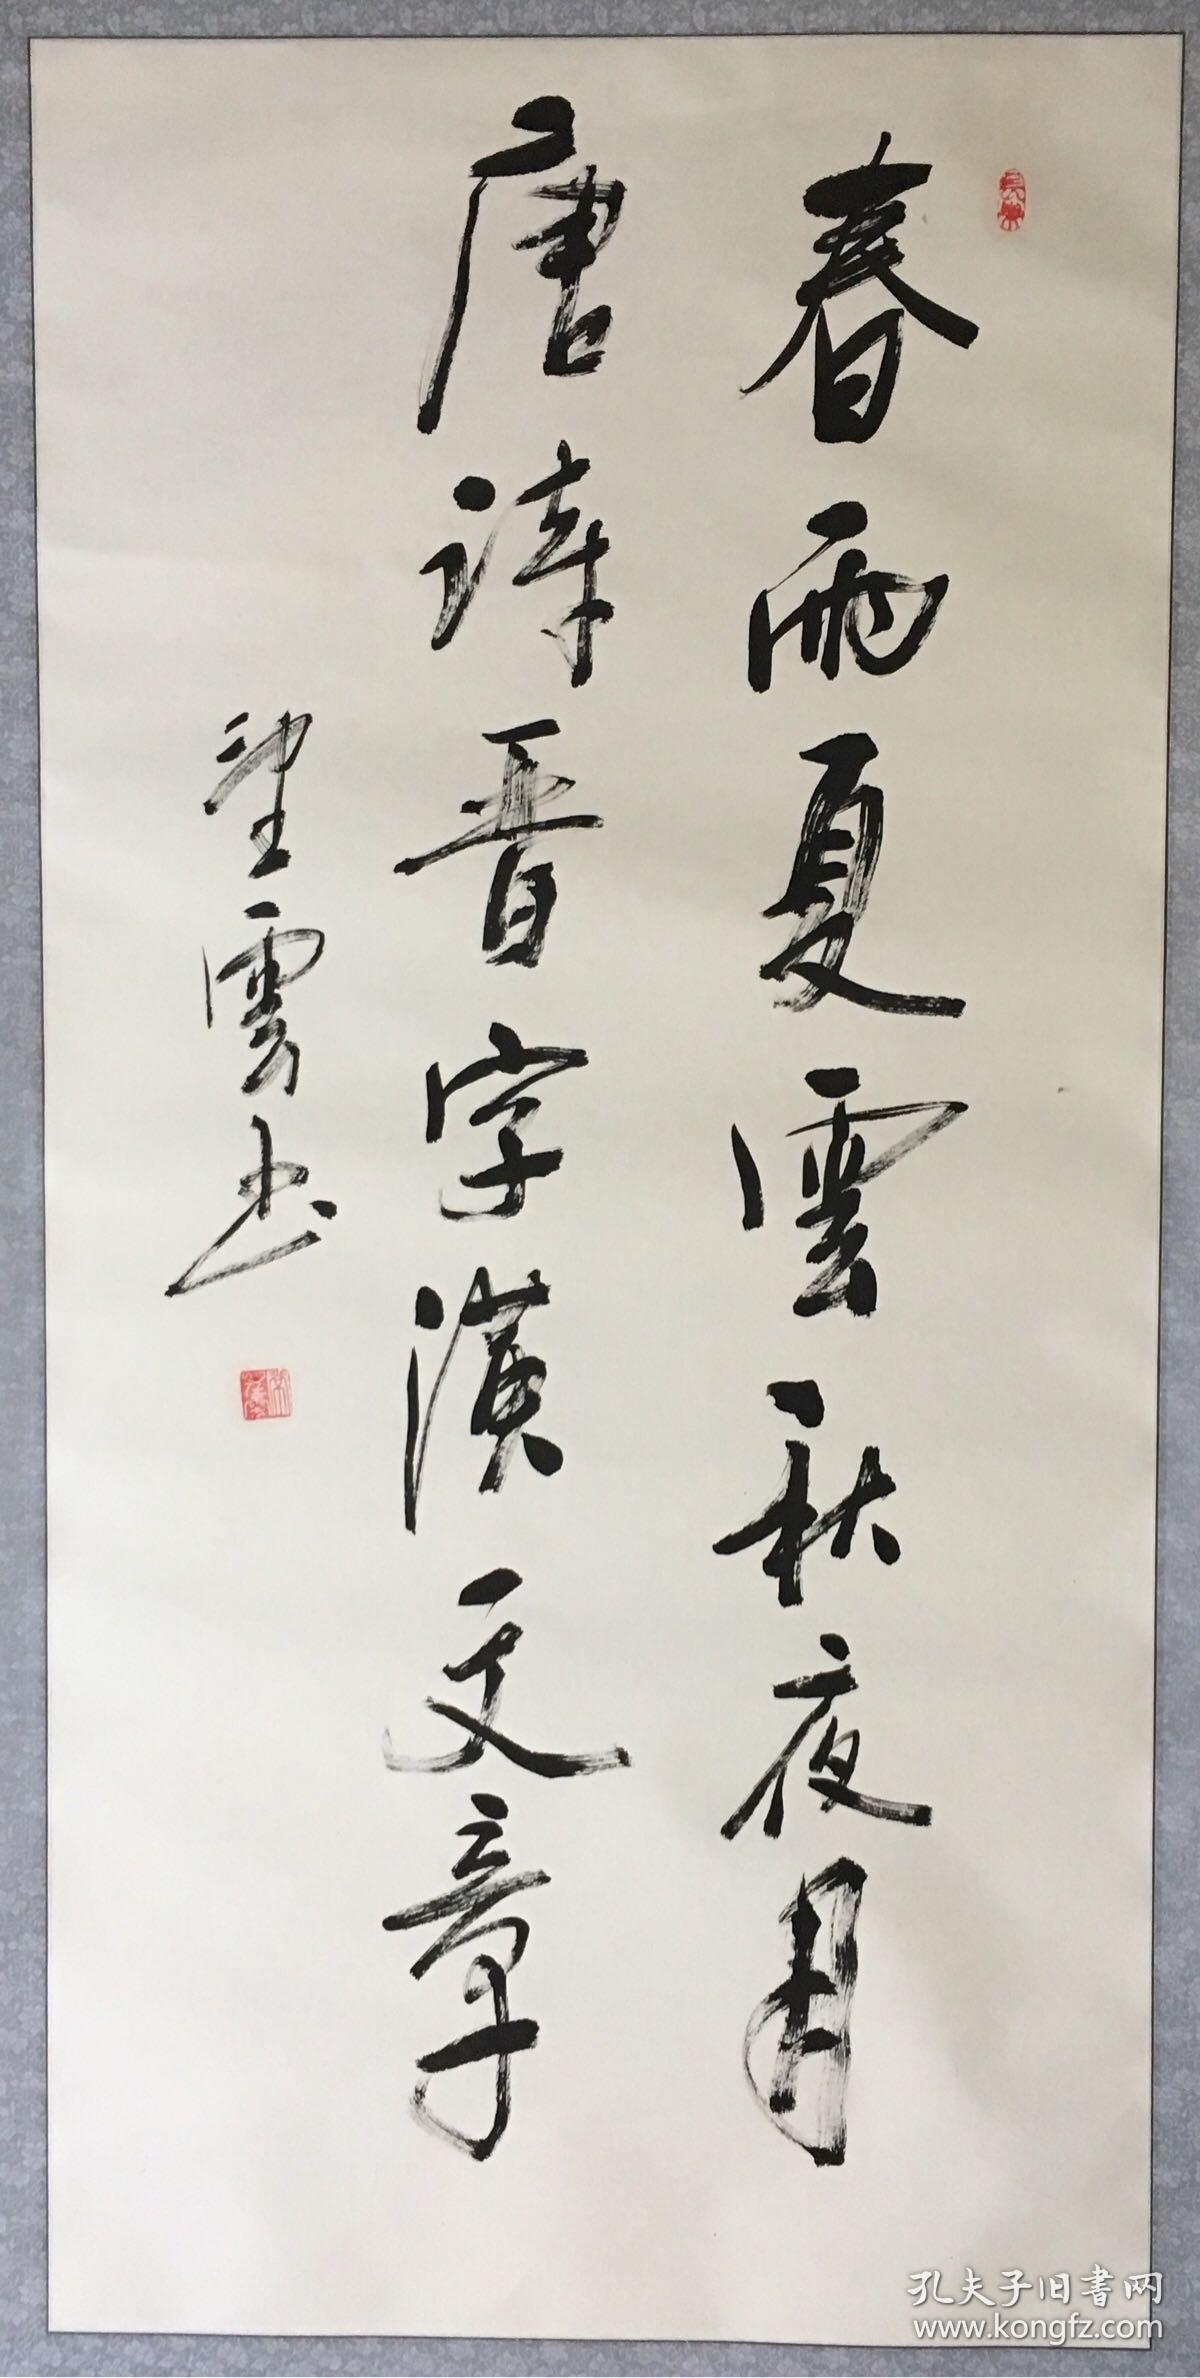 春雨夏雲秋夜月
唐詩晋字漢文章
望雲书
孔夫子旧書网
www.kongfz.com